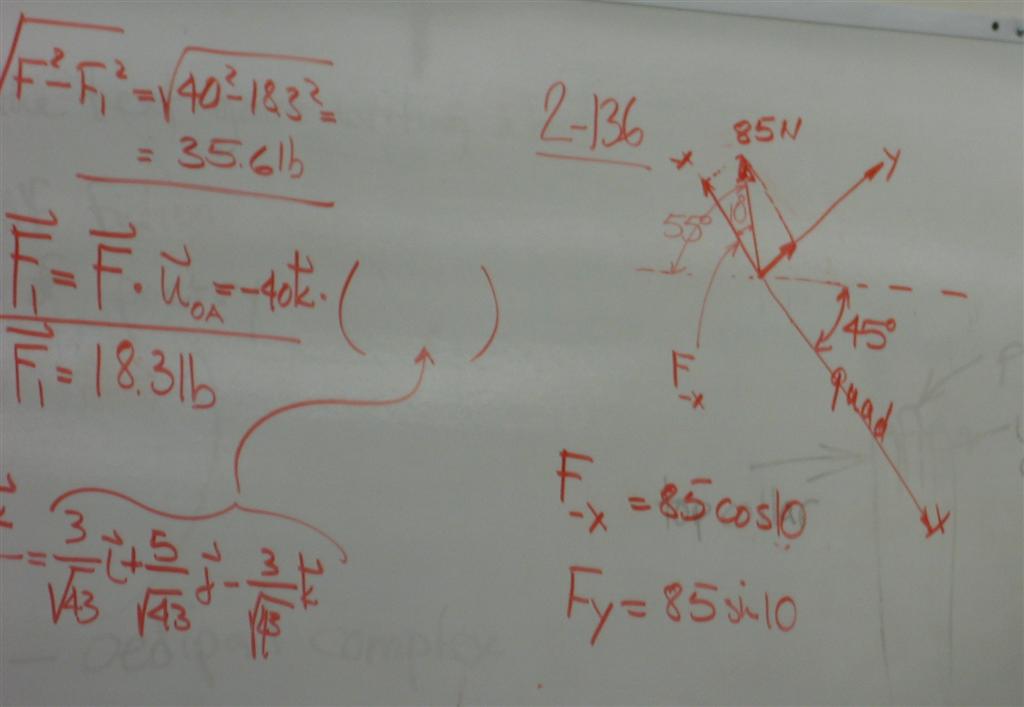 √F²-F₁² = √40²-18.3² =
= 35.6 lb
F⃗₁ = F⃗ · u⃗OA = -40k⃗ · ( )
F⃗₁ = 18.3 lb
= 3/√43 i⃗ + 5/√43 j⃗ - 3/√43 k⃗
2-136
85N
-x
y
55°
10°
45°
F-x
quad
x
F-x = 85 cos10
Fy = 85 sin10